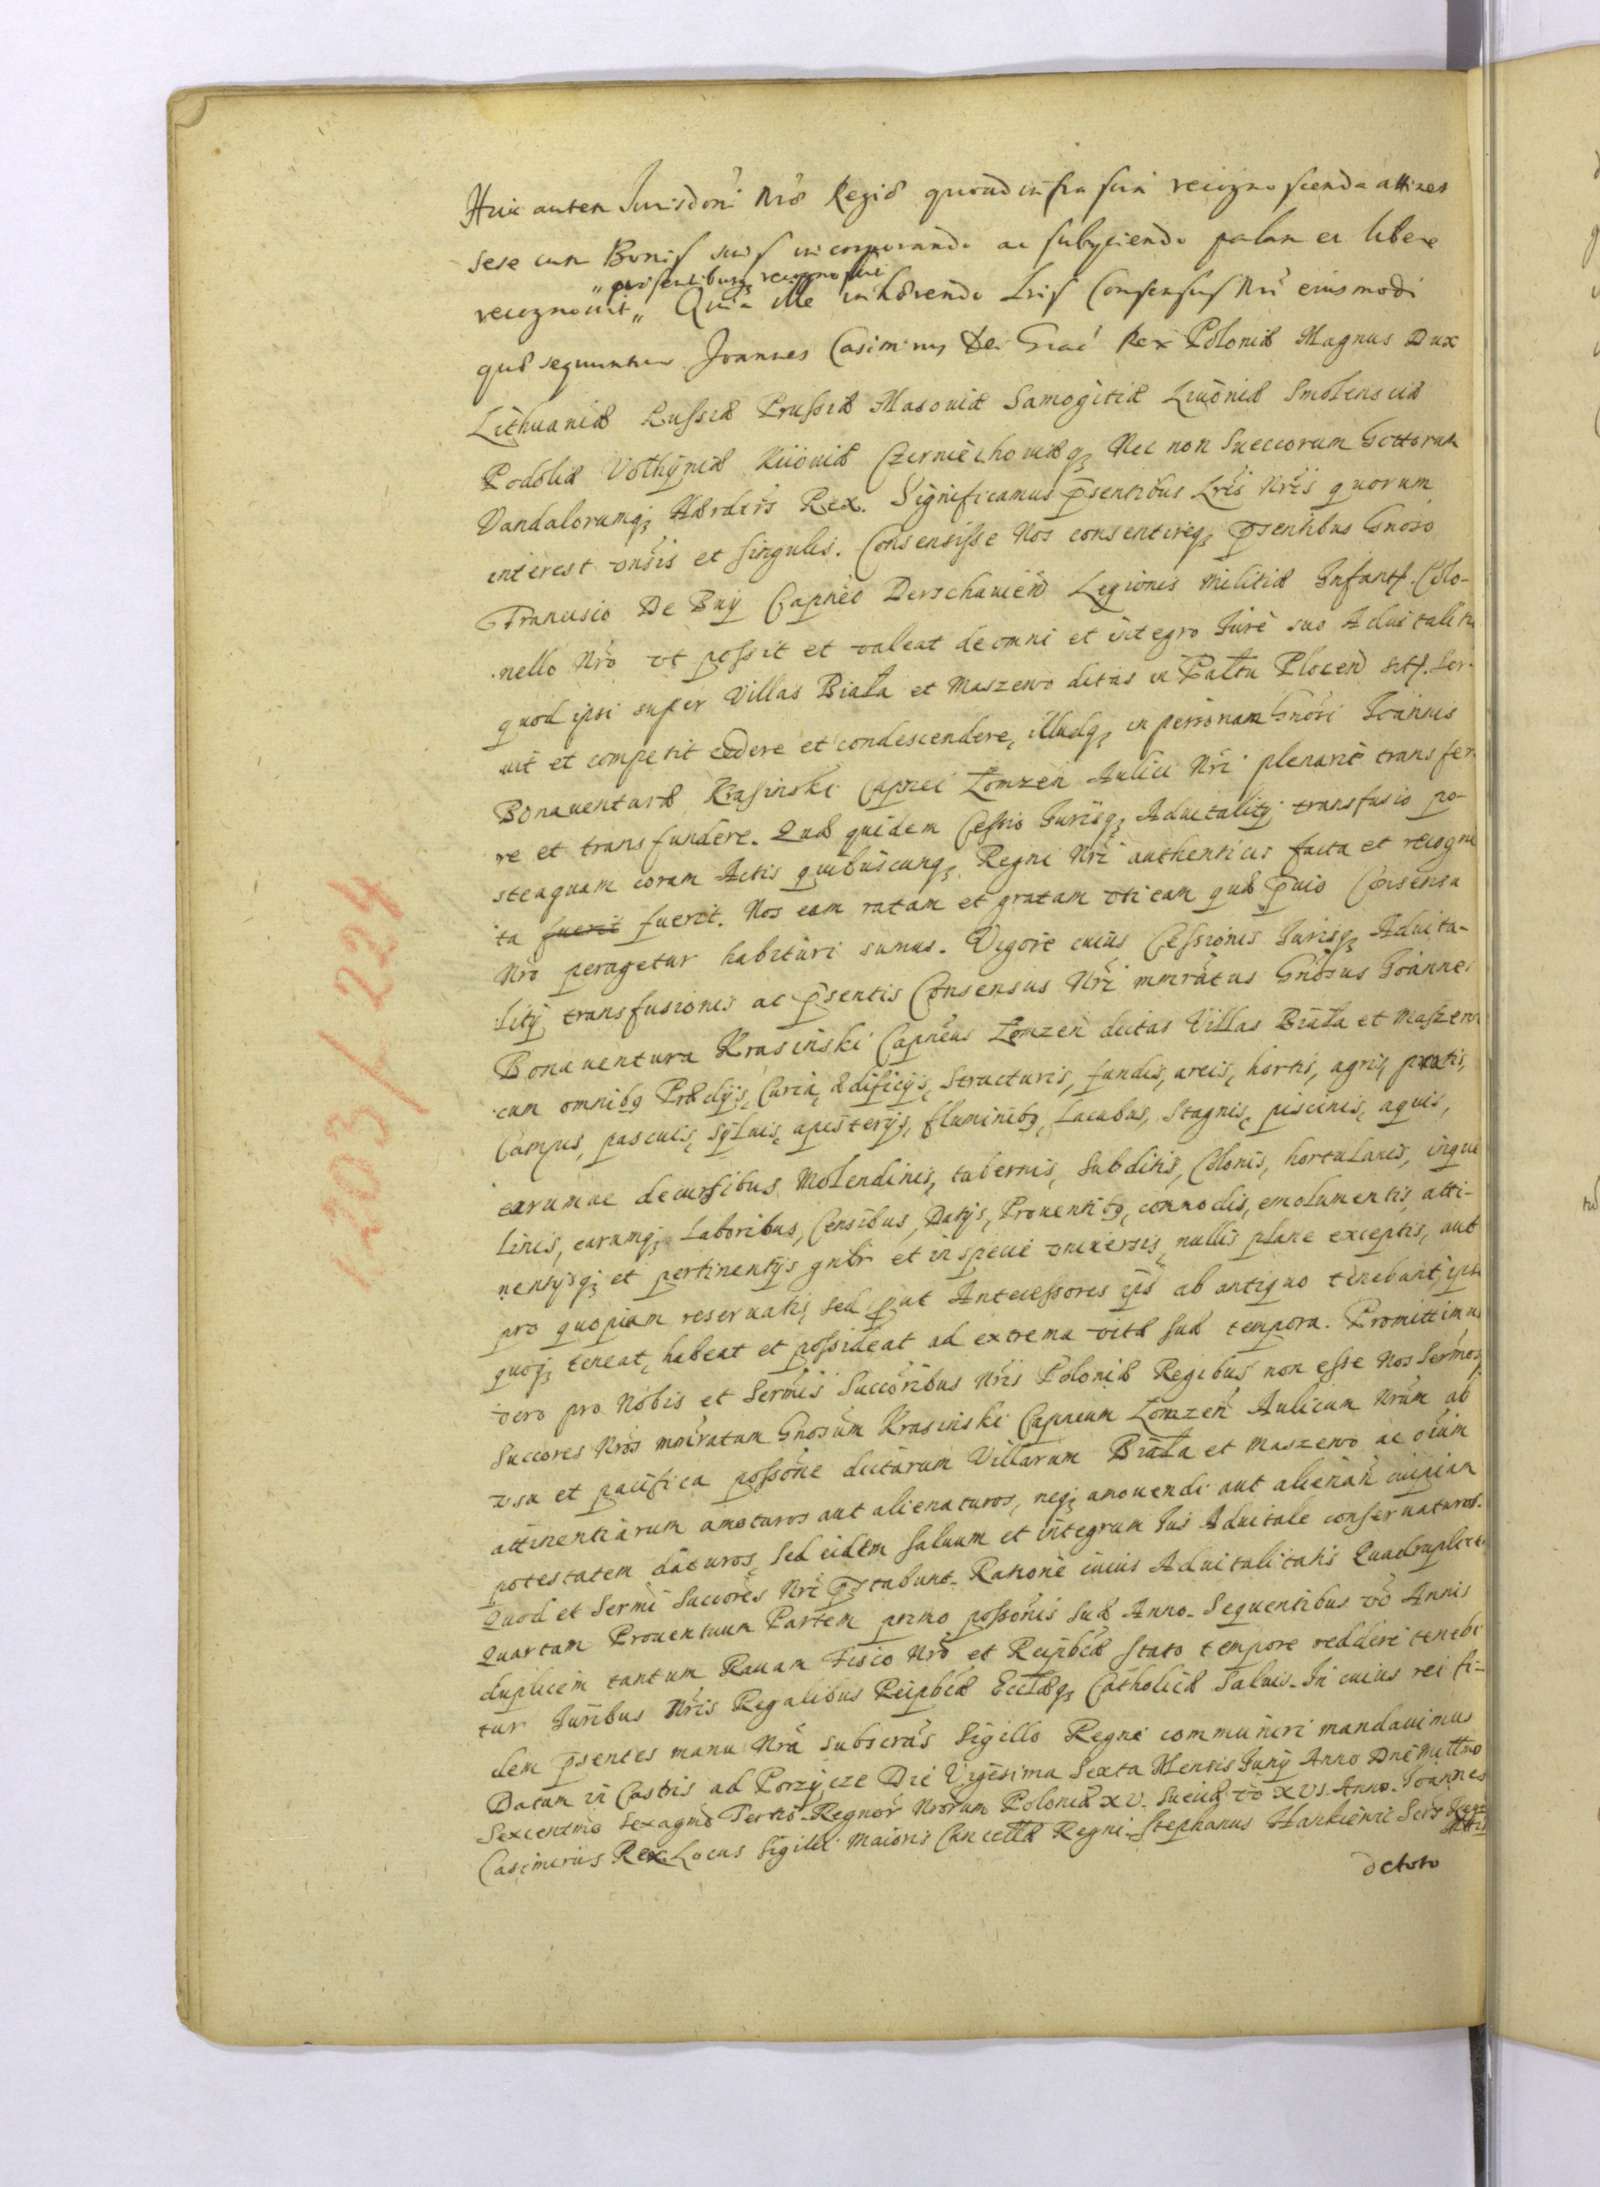 Huic autem Jurisdoni Nræ Regiæ quoad infra scri recognoscenda attinet
sese cum Bonis suis incorporando ac subyciendo palam et libere
„præsentibusq recognoscit
recognovit „ Quia ille inhærendo Lris Consensus Nri eiusmodi
quæ sequuntur Joannes Casimirus Dei Graã Rex Poloniæ Magnus Dux
Lithuaniæ Russiæ Prussiæ Masoviæ Samogitiæ Livoniæ Smolensciæ
Podoliæ Volhyniæ Kiioviæ Czerniechoviæq Nec non Suecorum Gottorum
Vandalorumq Hærdrīs Rex. Significamus p̄sentibus Lrīs Nrīs quorum
interest vnsis et singulis. Consensisse Nos consentireq p̄sentibus Gnoso
Francisco De Buy Capneo Derschauieñ Legionis militiæ Infant. Colo-
nello Nro vt possit et valeat de omni et integro Iure suo Aduitalit
quod ipsi super Villas Biała et Maszewo dictas in Paltu Ploceñ sit. ser-
uit et competit cedere et condescendere, illudq in personam Gnosi Joannis
Bonaventuræ Krasinski Capnei Łomzeñ Aulici Nri plenariè transfer-
re et transfundere. Quæ quidem Cessio Iurisq Aduitalitÿ transfusio po-
steaquam coram Actis quibuscunq Regni Nri authenticis facta et recogni
ta fuerit fuerit. Nos eam ratam et gratam vti eam quæ p̄uio Consensu
Nro peragetur habituri sumus. Vigore cuius Cessionis Iurisq Aduita-
litÿ transfusionis ac p̄sentis Consensus Nri mmratus Gnosus Joannes
Bonaventura Krasinski Capneus Łomzeñ dictas Villas Biała et Maszewo
cum omnibq Prædijs, Curia, ædificijs, Structuris, fundis, areis, hortis, agris, pratis,
Campis, pascuis, Syluis, apisterijs, fluminibq, Lacubus, Stagnis, piscinis, aquis,
earumque decursibus, Molendinis, tabernis, Subditis, Colonis, hortulanis, inqui
linis, earumq Laboribus, Censibus, Datijs, Prouentibq, commodis, emolumentis, atti-
nentijsq et pertinentijs gnlr et in specie vniuersis, nullis plane exceptis, aut
pro quopiam reseruatis, sed put Antecessores ips ab antiquo tenebant, ipse
quoq teneat, habeat et possideat ad extrema vitæ suæ tempora. Promittimus
vero pro Nobis et Sermis Succoribus Nris Poloniæ Regibus non esse Nos Sermosq
Succores Nros mmratum Gnosum Krasinski Capneum Łomzeñ Aulicum Nrum ab
vsu et pacifica possone dictarum Villarum Biała et Maszewo ac oium
attinentiarum amoturos aut alienaturos, neq amouendi aut alienañ cuipiam
potestatem daturos, sed eidem saluum et integrum Ius Aduitale conseruaturos.
Quod et Sermi Succores Nri p̄stabunt. Ratione cuius Aduitalitatis Quadruplicem
Quartam Prouentuum Partem primo possonis suæ Anno. Sequentibus vo Annis
duplicem tantum Rauam Fisco Nro et Reipbcæ stato tempore reddere tenebi
tur Iuribus Nris Regalibus Reipbcæ Ecclæq Catholicæ Saluis. In cuius rei fi-
dem p̄sentes manu Nra subscras Sigillo Regni communiri mandauimus
Datum in Castris ad Porzÿcze Die Vigesima Sexta Mensis Iunÿ Anno Dni Millmo
Sexcentmo Sexagmo Tertio. Regnor Nrorum Poloniæ XV. Sueciæ vo XVI Anno. Joannes
Casimirus Rex. Locus Sigilli Maioris Cancellæ Regni. Stephanus Hankiewic Secr Regiæ
Mttis
de toto
1203/224